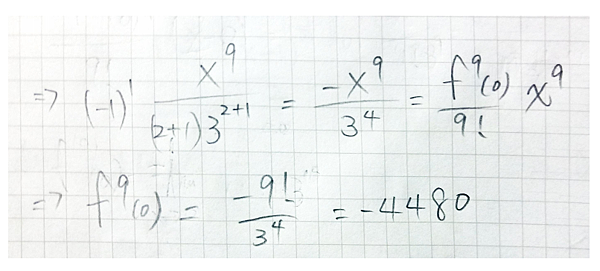 => (-1)^1 x^9 / ((2+1)3^{2+1}) = -x^9 / 3^4 = f^9(0) / 9! x^9
=> f^9(0) = -9! / 3^4 = -4480